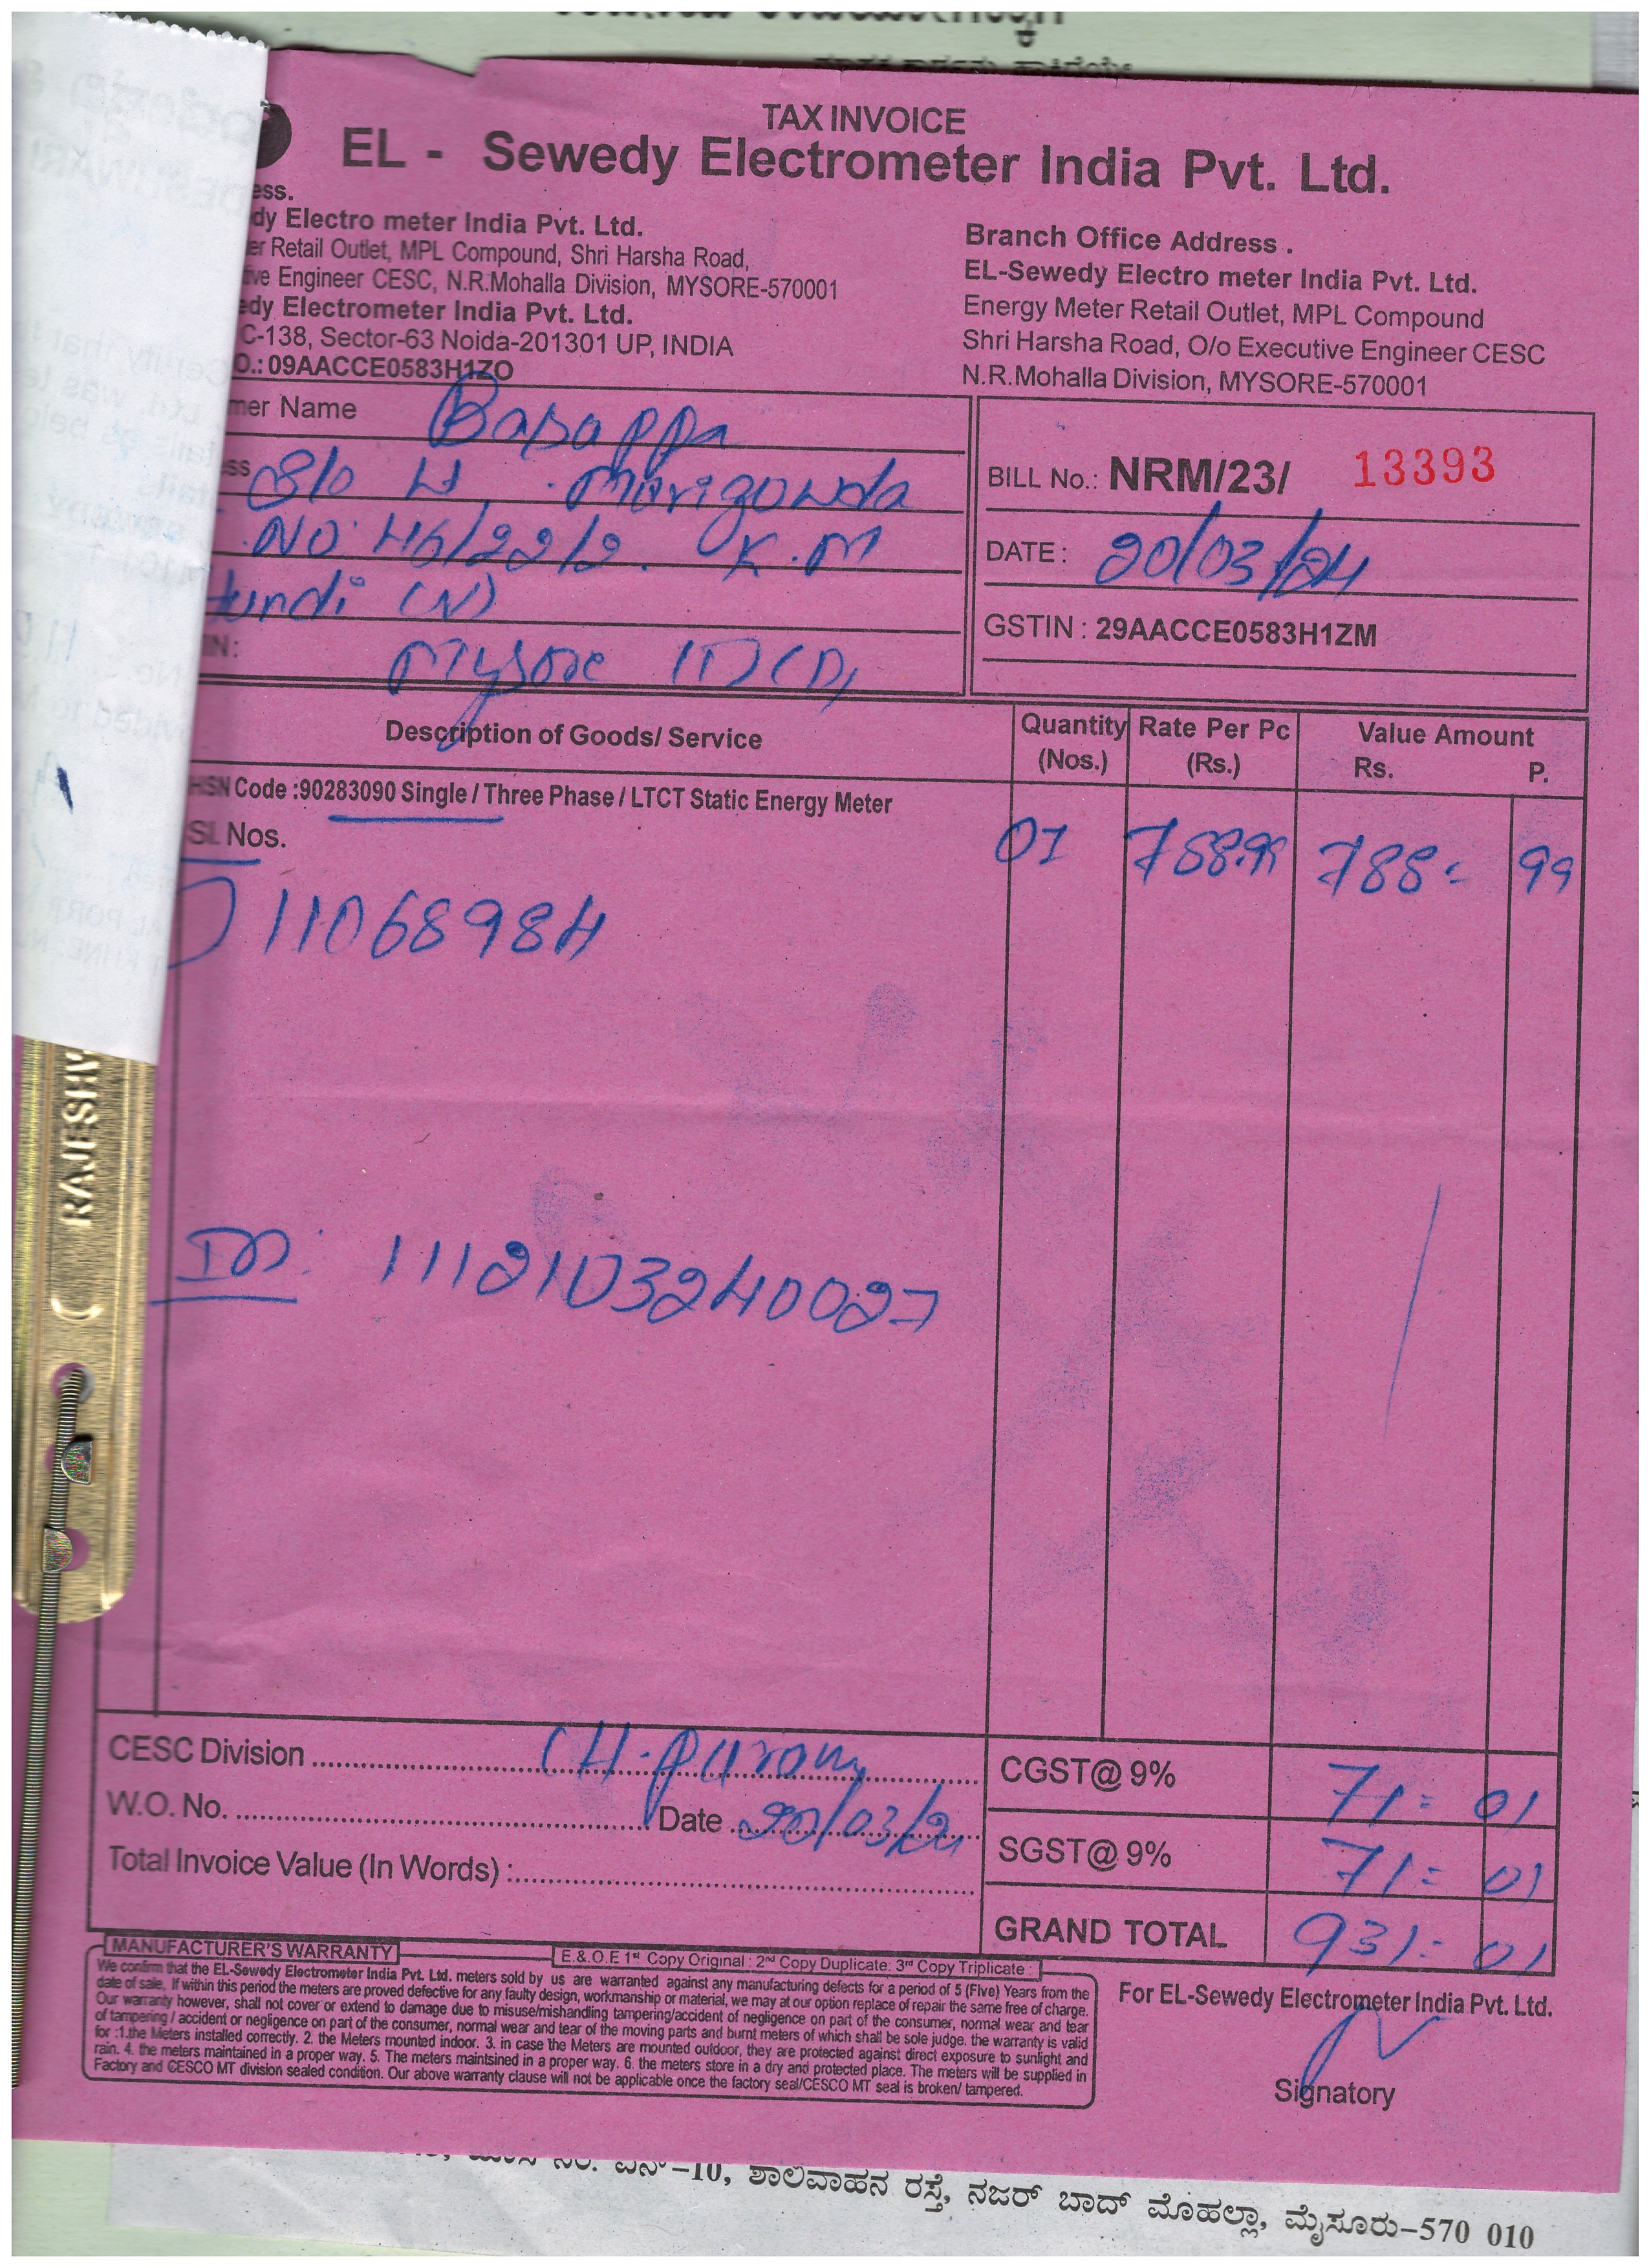 TAX INVOICE
EL - Sewedy Electrometer India Pvt. Ltd.
ess.
dy Electro meter India Pvt. Ltd.
er Retail Outlet, MPL Compound, Shri Harsha Road,
ive Engineer CESC, N.R.Mohalla Division, MYSORE-570001
edy Electrometer India Pvt. Ltd.
C-138, Sector-63 Noida-201301 UP, INDIA
O.: 09AACCE0583H1ZO
Branch Office Address .
EL-Sewedy Electro meter India Pvt. Ltd.
Energy Meter Retail Outlet, MPL Compound
Shri Harsha Road, O/o Executive Engineer CESC
N.R.Mohalla Division, MYSORE-570001
mer Name Basappa
ess S/o H. Marigowda
NO 46/22/2. K.M
Hundi (V)
IN: Mysore (T) (D)
BILL No.: NRM/23/ 13393
DATE : 20/03/24
GSTIN : 29AACCE0583H1ZM
Description of Goods/ Service Quantity (Nos.) Rate Per Pc (Rs.) Value Amount Rs. P.
HSN Code :90283090 Single / Three Phase / LTCT Static Energy Meter
Sl. Nos. 01 788.99 788= 99
11068984
ID: 1112103240027
RAJESHW
CESC Division CH.puram CGST@ 9% 71= 01
W.O. No. Date 20/03/24
SGST@ 9% 71= 01
Total Invoice Value (In Words) :
GRAND TOTAL 931= 01
MANUFACTURER'S WARRANTY E.&.O.E 1st Copy Original : 2nd Copy Duplicate: 3rd Copy Triplicate :
We confirm that the EL-Sewedy Electrometer India Pvt. Ltd. meters sold by us are warranted against any manufacturing defects for a period of 5 (Five) Years from the
date of sale, If within this period the meters are proved defective for any faulty design, workmanship or material, we may at our option replace of repair the same free of charge.
Our warranty however, shall not cover or extend to damage due to misuse/mishandling tampering/accident of negligence on part of the consumer, normal wear and tear
of tampering / accident or negligence on part of the consumer, normal wear and tear of the moving parts and burnt meters of which shall be sole judge. the warranty is valid
for :1.the Meters installed correctly. 2. the Meters mounted indoor. 3. in case the Meters are mounted outdoor, they are protected against direct exposure to sunlight and
rain. 4. the meters maintained in a proper way. 5. The meters maintsined in a proper way. 6. the meters store in a dry and protected place. The meters will be supplied in
Factory and CESCO MT division sealed condition. Our above warranty clause will not be applicable once the factory seal/CESCO MT seal is broken/ tampered.
For EL-Sewedy Electrometer India Pvt. Ltd.
Signatory
ಎನ್–10, ಶಾಲಿವಾಹನ ರಸ್ತೆ, ನಜರ್ ಬಾದ್ ಮೊಹಲ್ಲಾ, ಮೈಸೂರು–570 010